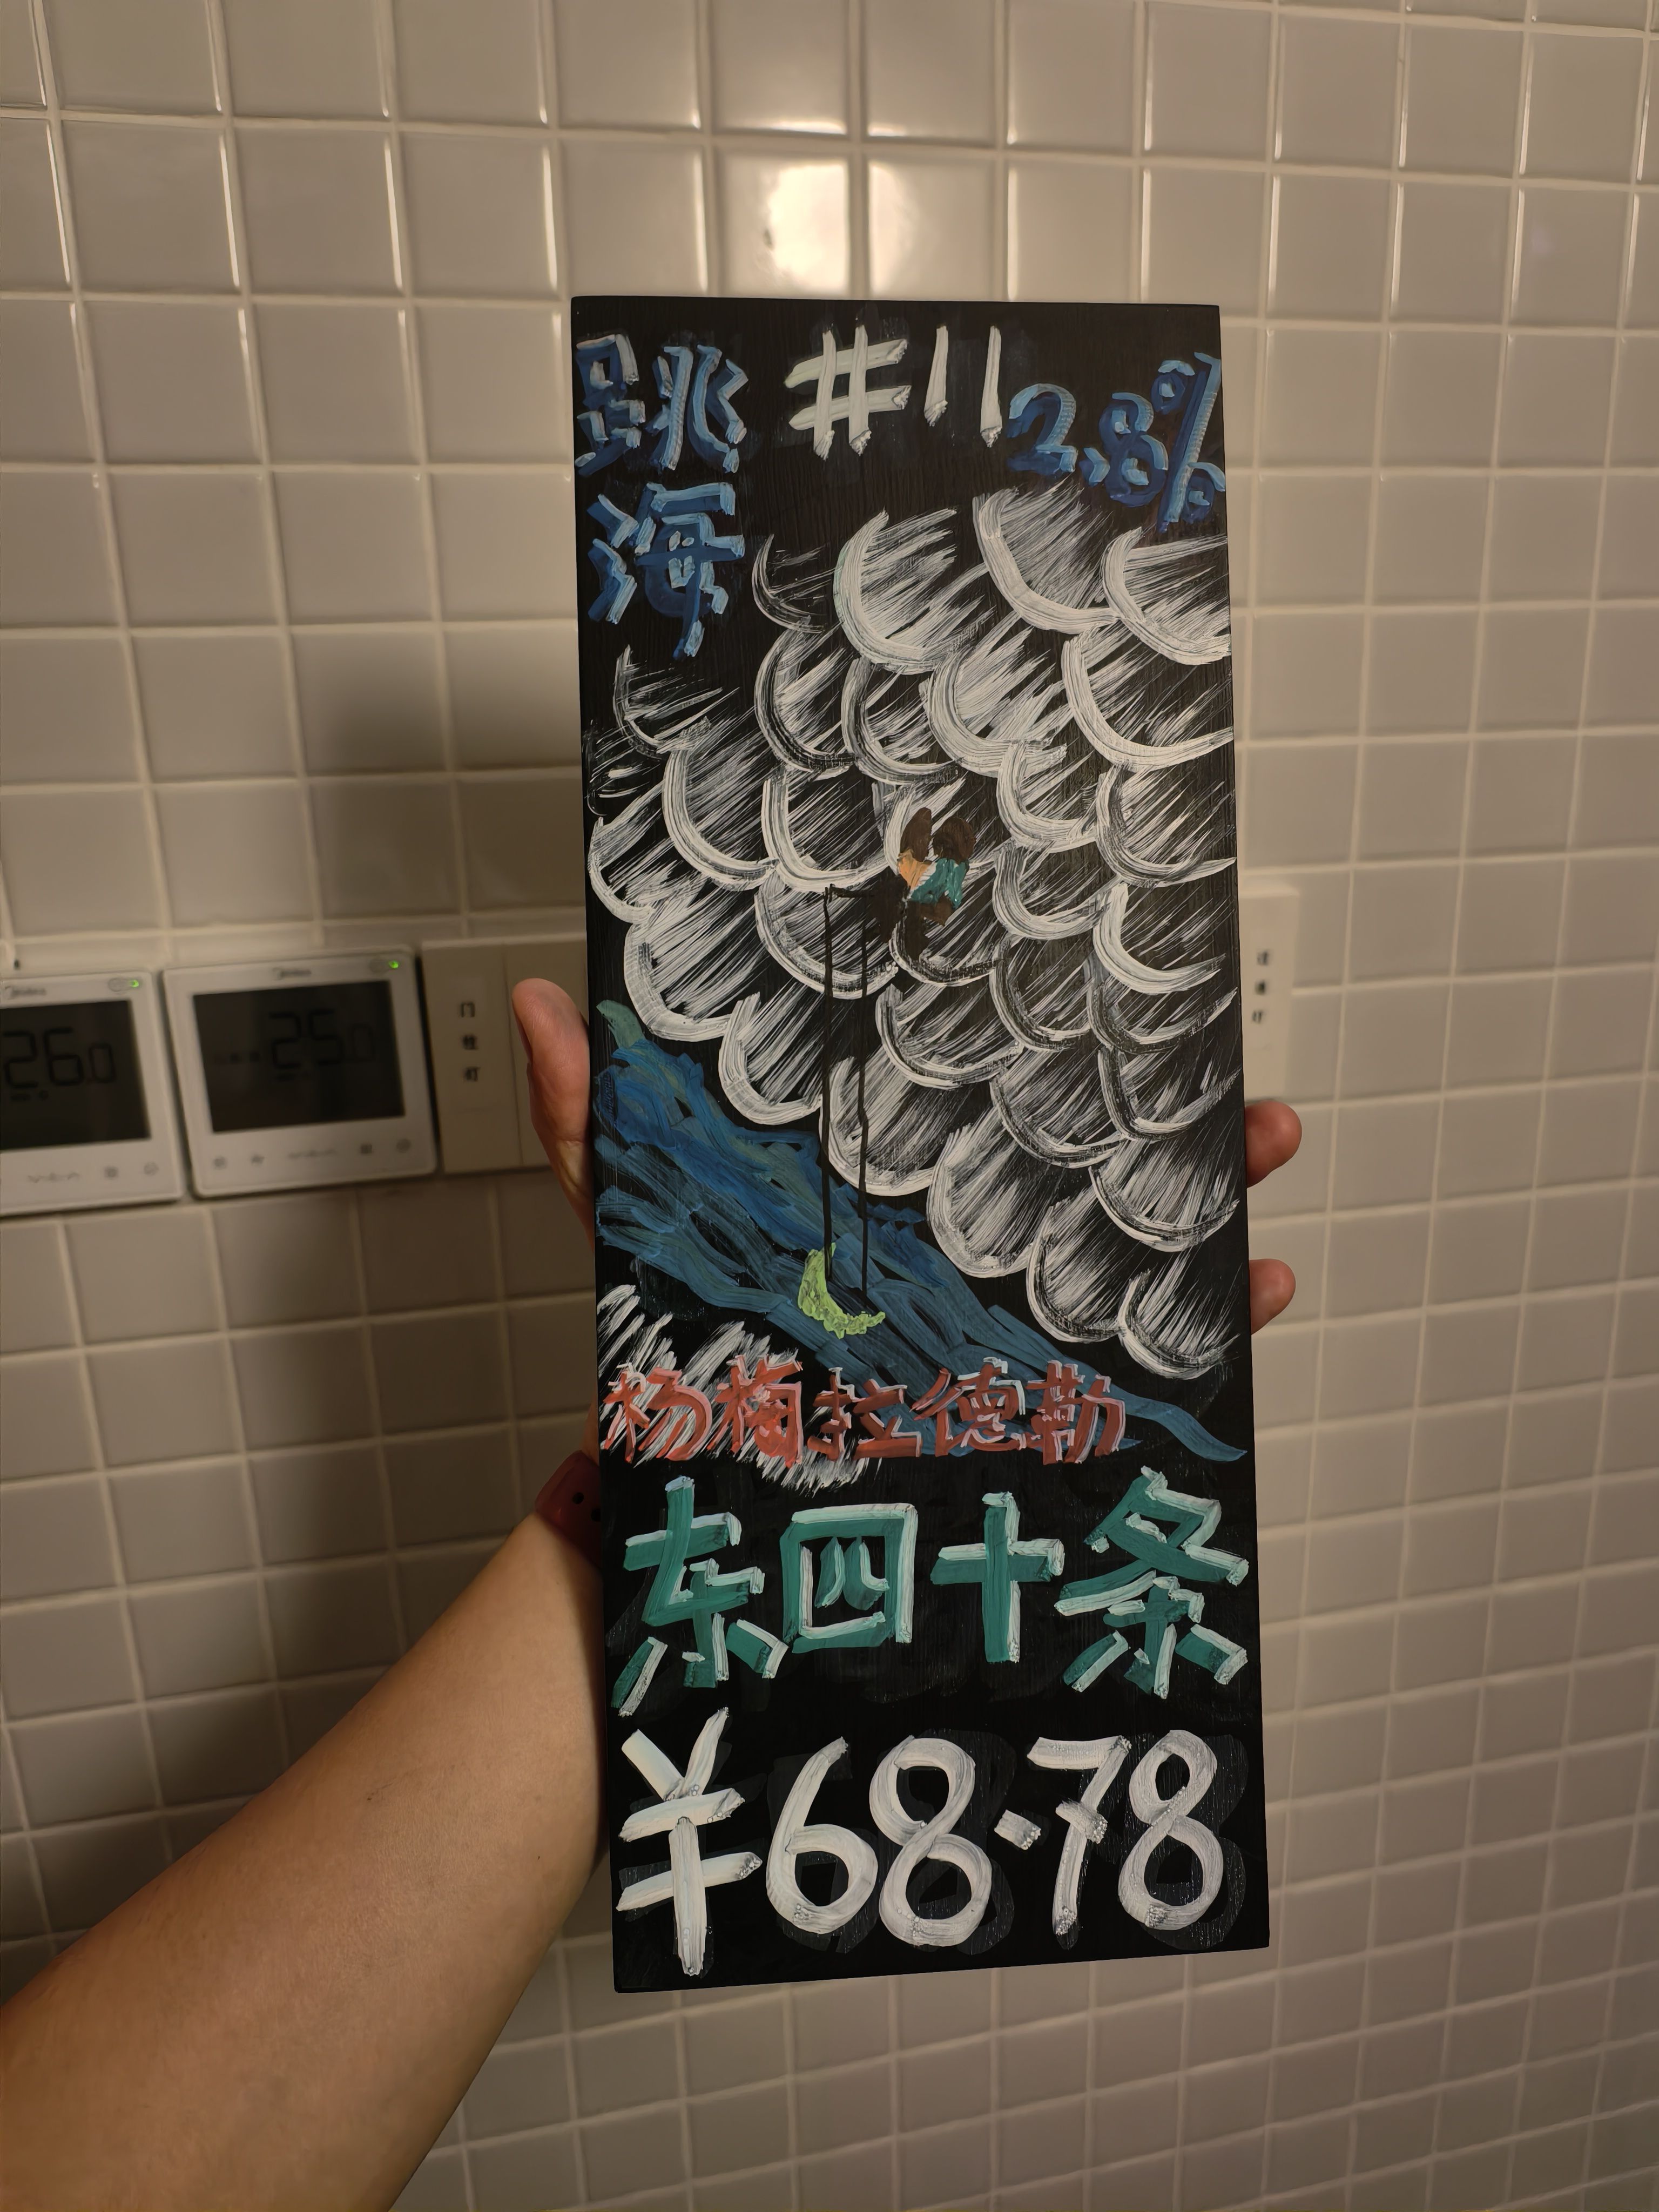 跳海
#11
2.8%
杨梅拉德勒
东四十条
¥68·78
Midea
26.0
Midea
25.0
门
灯